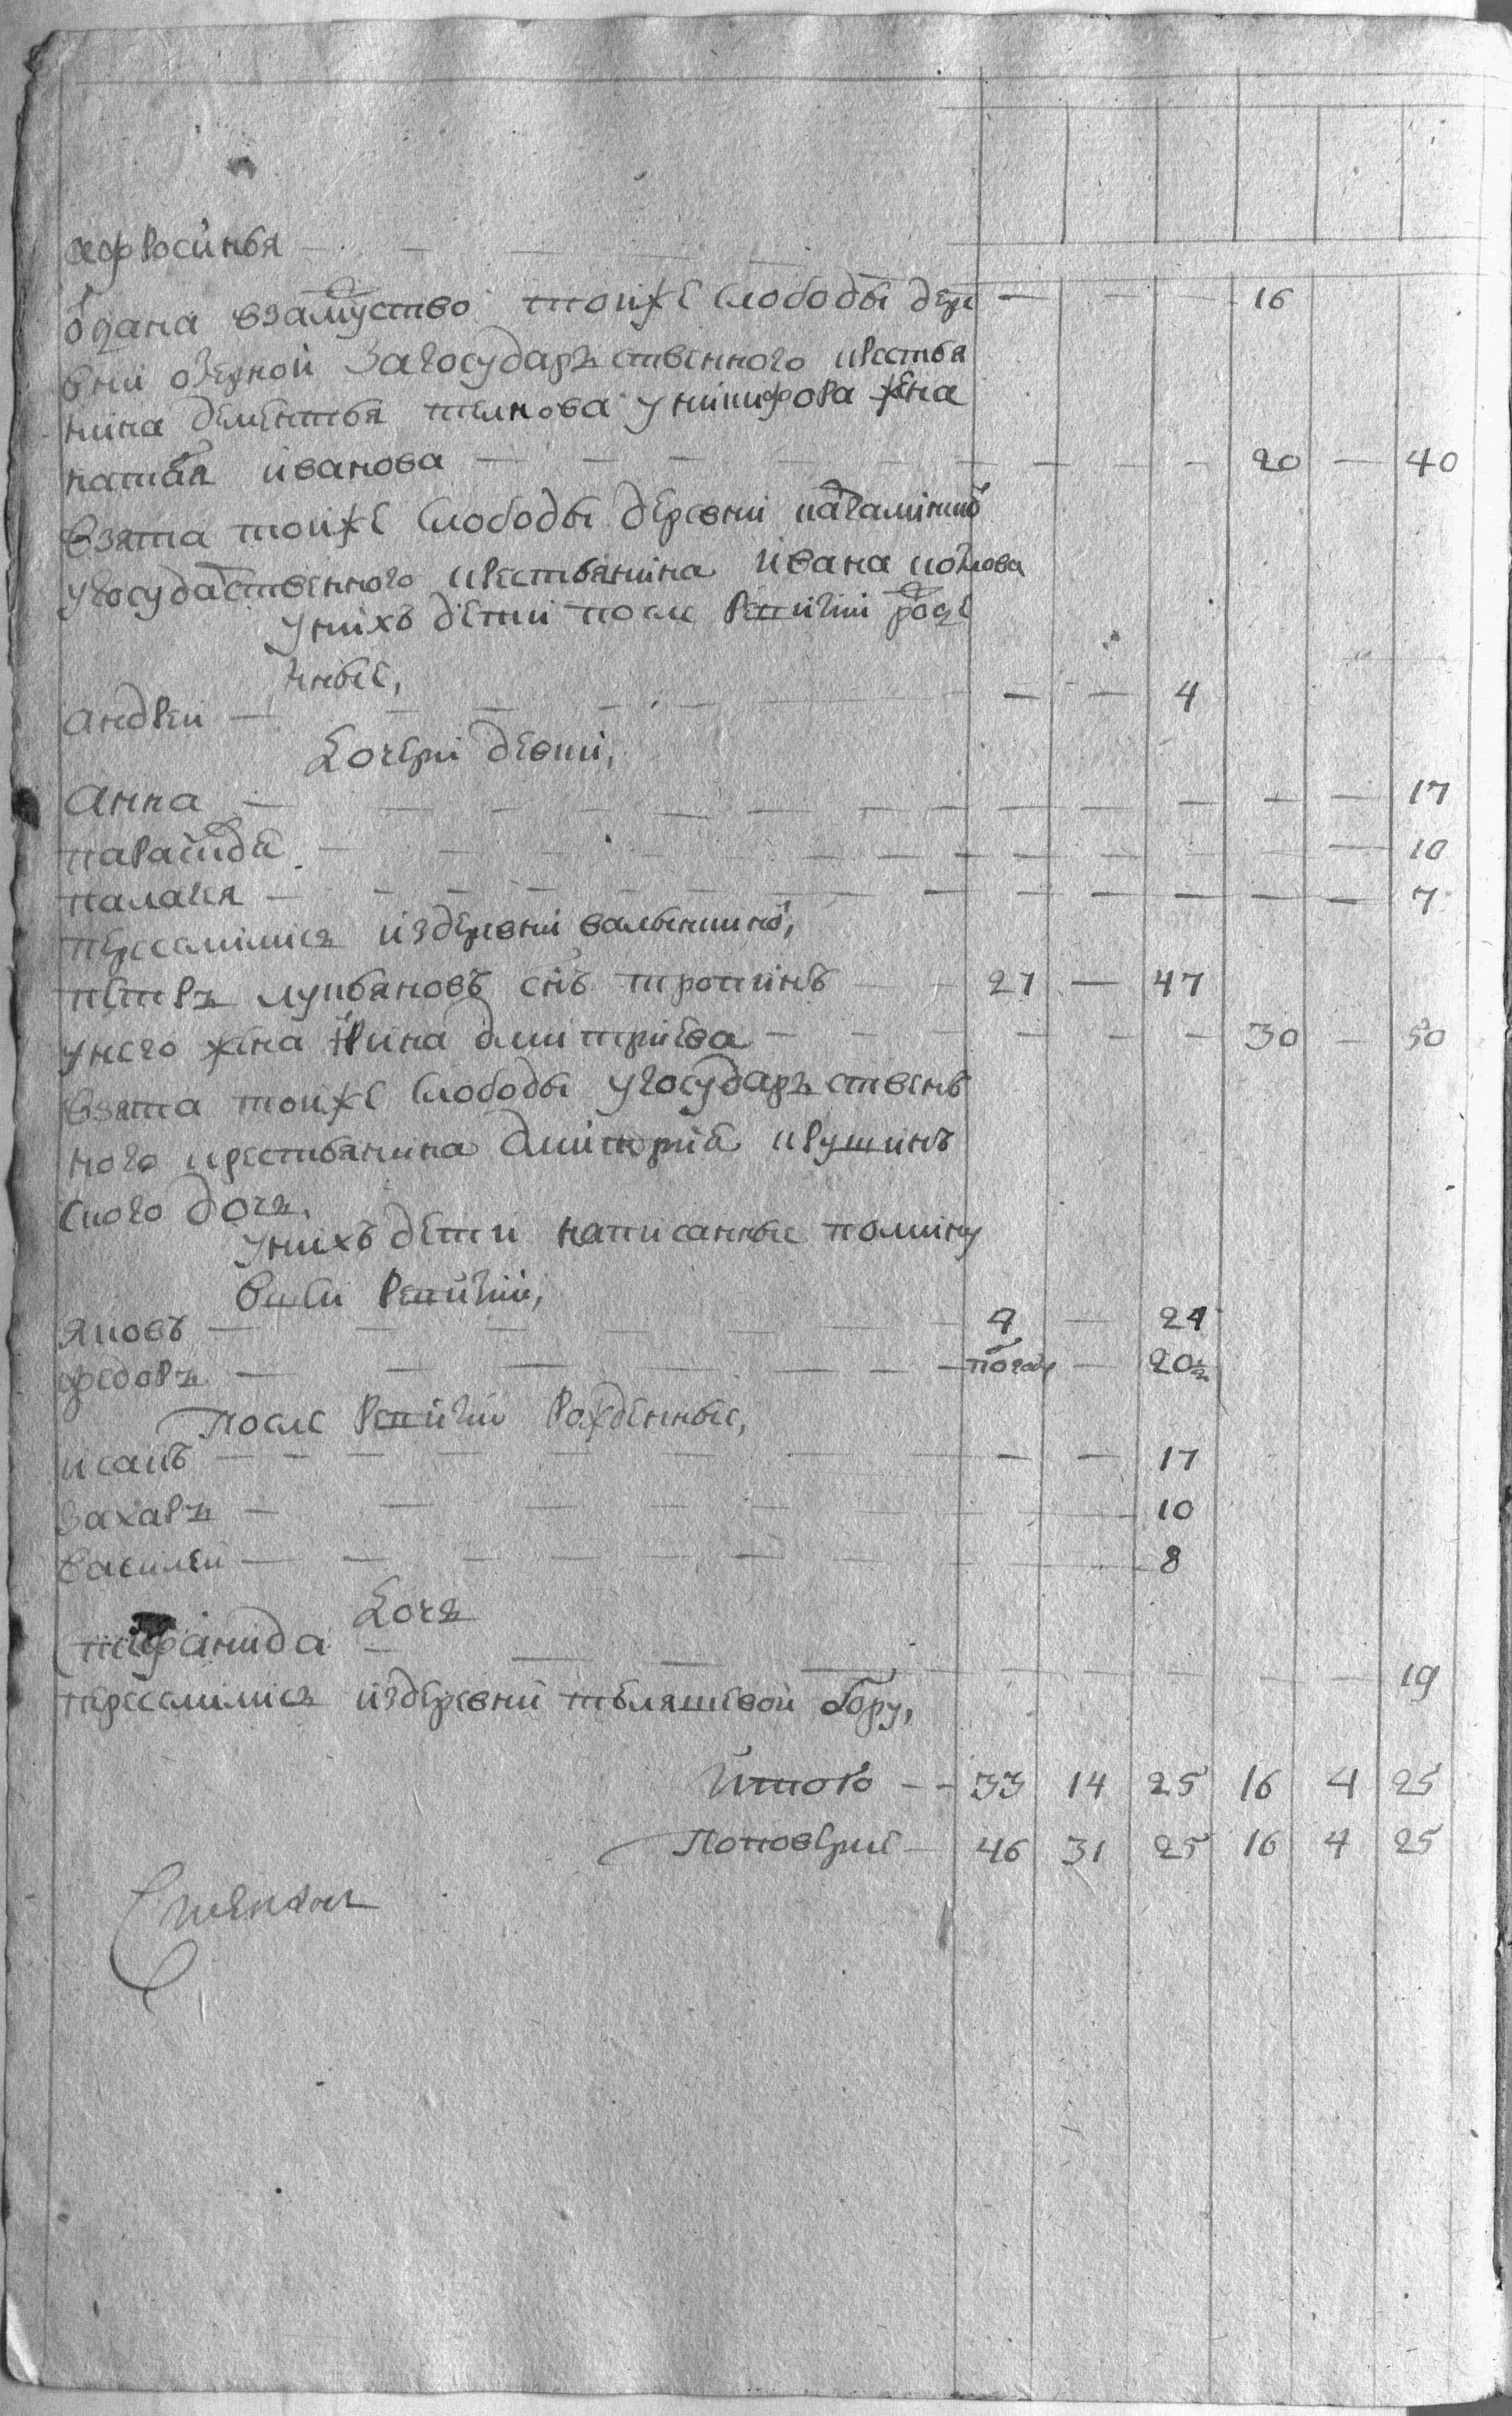 афросинья — — — — 16
одана взамуство тойже слободы дере
вни озерной загосударственного крестья
нина дементья телкова уникифора жена
наталья иванова — — — 20 — 40
взята тойже слободы деревни
угосударственного крестьянина ивана
унихъ дети после ревизии роже
нные,
андреи — — — 4
Дочери девки,
анна — — — 17
парасковья — — — 10
палагея — — — 7
переселился издеревни
петръ лукьяновъ снъ тропинъ — 27 — 47
унего жена ирина дмитриева — — 30 — 50
взята тойже слободы угосударственъ
ного крестьянина дмитрия крутинъ
ского дочь.
унихъ дети написанные помину
вшеи ревизии,
яковъ — — — 4 — 24
федоръ — — — — 20½
после ревизии рожденные,
исакъ — — — 17
захаръ — — — 10
василеи — — — 8
Дочь
степанида — — — 19
переселился издеревни тебляшевой бору,
Итого — 33 14 25 16 4 25
Поповерке — 46 31 25 16 4 25